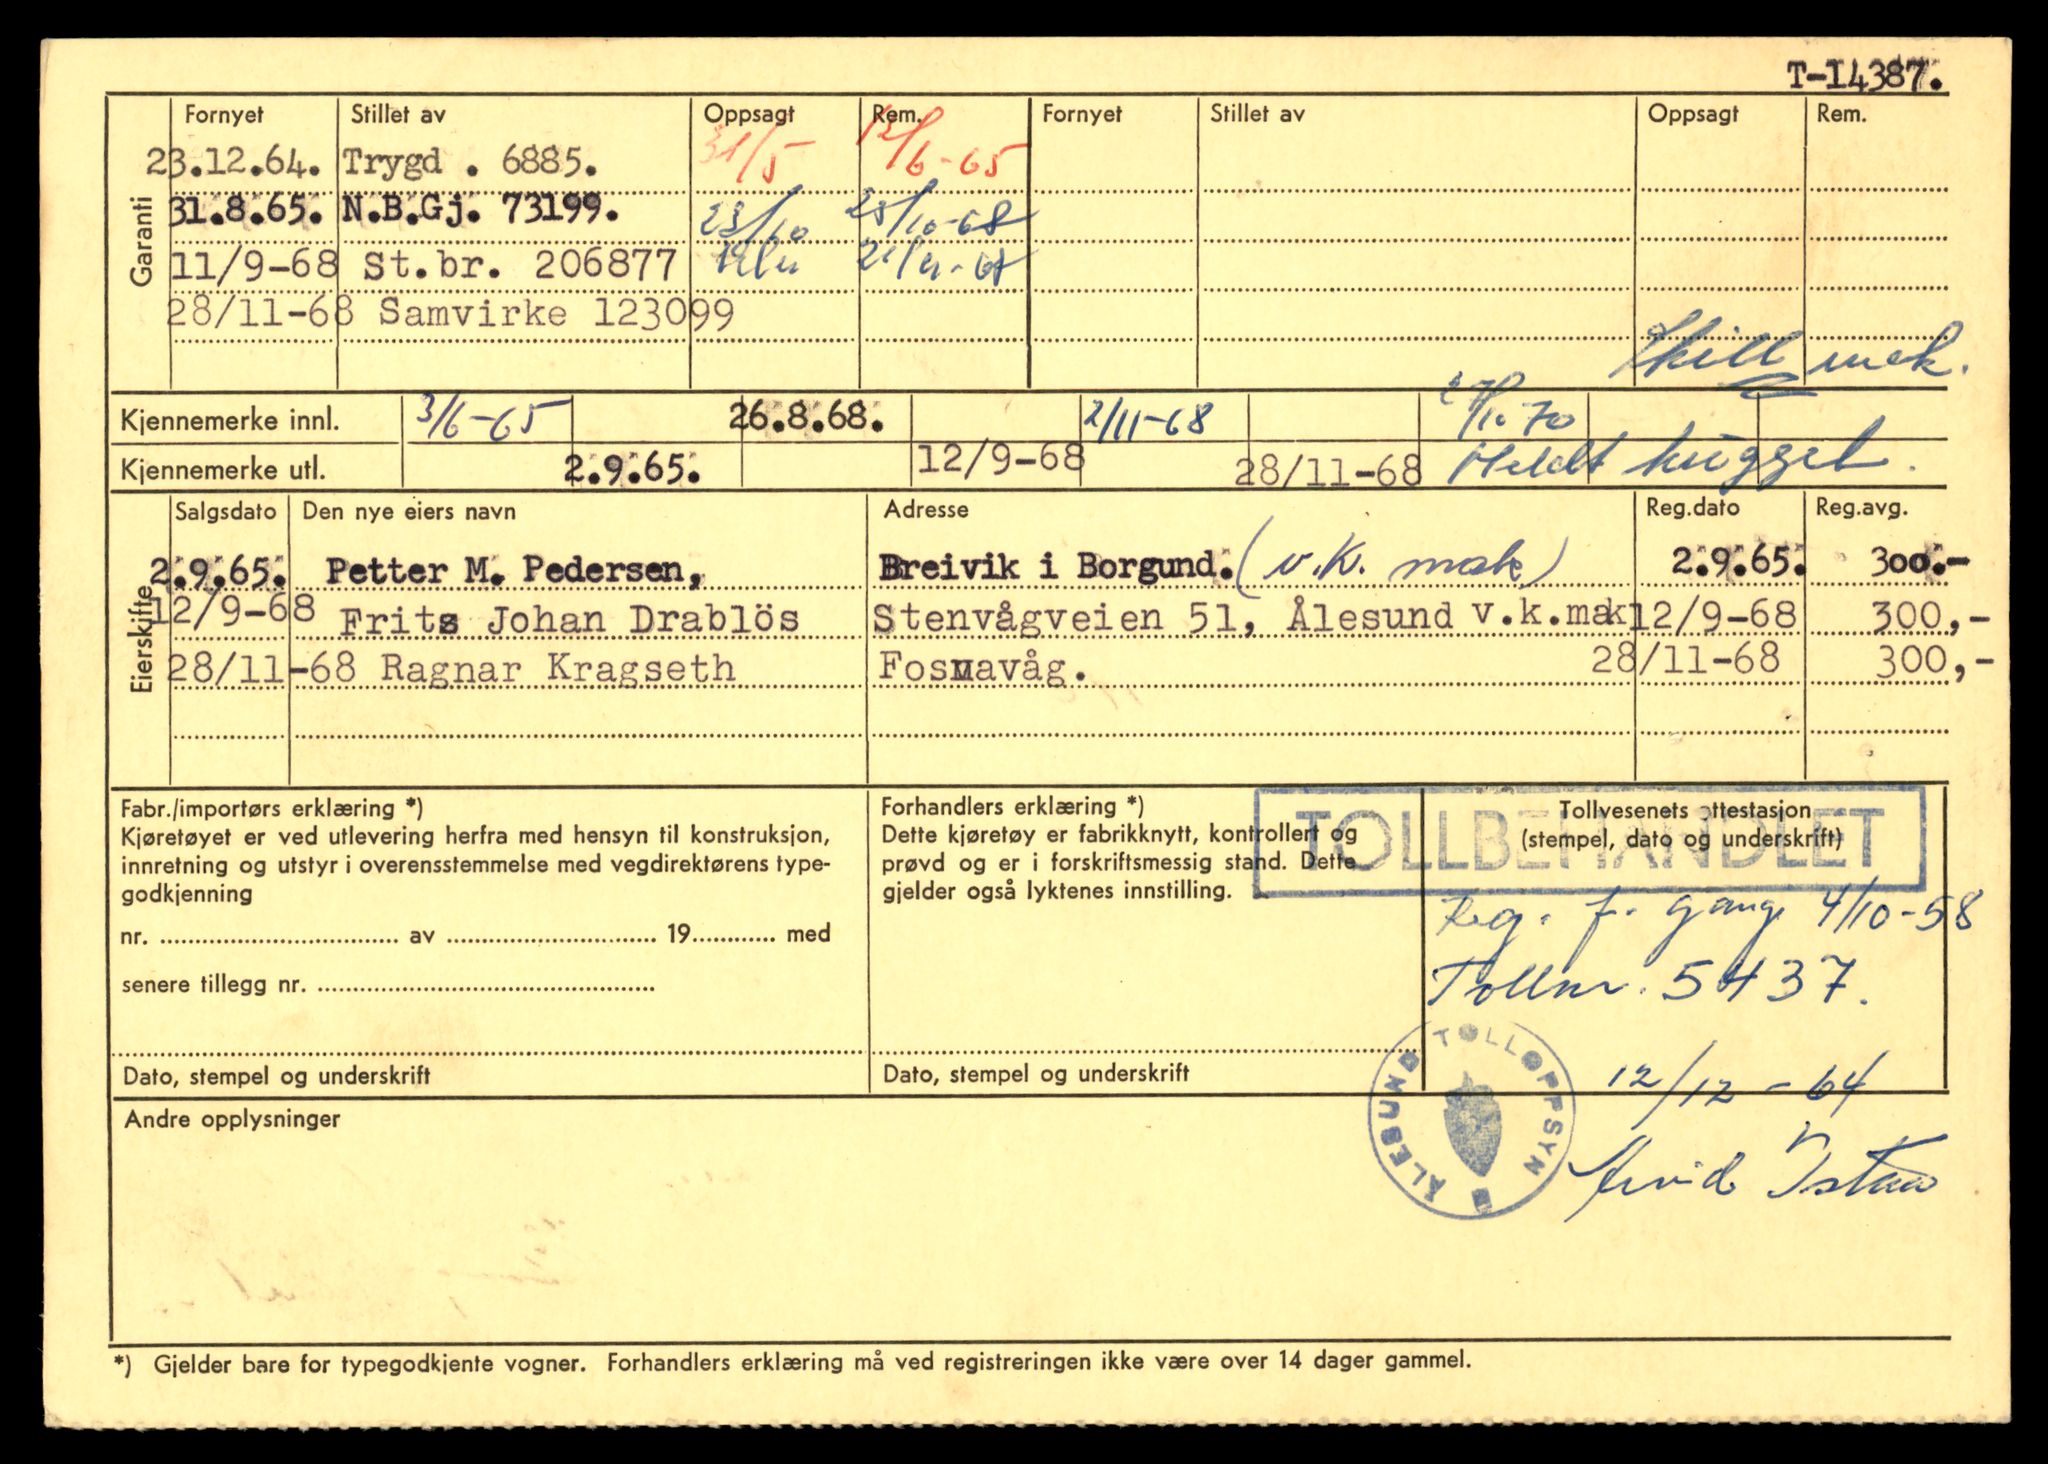 T-14387.
Garanti
Fornyet Stillet av Oppsagt Rem. Fornyet Stillet av Oppsagt Rem.
23.12.64. Trygd . 6885. 31/5 12/6-65
31.8.65. N.B.Gj. 73199. 23/10 23/10-68
11/9-68 St.br. 206877
28/11-68 Samvirke 123099
Skill mek.
Kjennemerke innl. 3/6-65 26.8.68. 2/11-68 27/10 70
Kjennemerke utl. 2.9.65. 12/9-68 28/11-68 Meldt hugget.
Eierskifte
Salgsdato Den nye eiers navn Adresse Reg.dato Reg.avg.
2.9.65. Petter M. Pedersen, Breivik i Borgund. (v.k. mak) 2.9.65. 300.-
12/9-68 Frits Johan Drablös Stenvågveien 51, Ålesund v.k.mak 12/9-68 300,-
28/11-68 Ragnar Kragseth Fosnavåg. 28/11-68 300,-
Fabr./importørs erklæring *)
Kjøretøyet er ved utlevering herfra med hensyn til konstruksjon,
innretning og utstyr i overensstemmelse med vegdirektørens type-
godkjenning
nr. av 19 med
senere tillegg nr.
Dato, stempel og underskrift
Forhandlers erklæring *)
Dette kjøretøy er fabrikknytt, kontrollert og
prøvd og er i forskriftsmessig stand. Dette
gjelder også lyktenes innstilling.
Dato, stempel og underskrift
Tollvesenets attestasjon
(stempel, dato og underskrift)
TOLLBEHANDLET
Reg. f. gang 4/10-58
Tollnr. 5437.
ÅLESUND TOLLOPPSYN
12/12-64
Arvid
Andre opplysninger
*) Gjelder bare for typegodkjente vogner. Forhandlers erklæring må ved registreringen ikke være over 14 dager gammel.